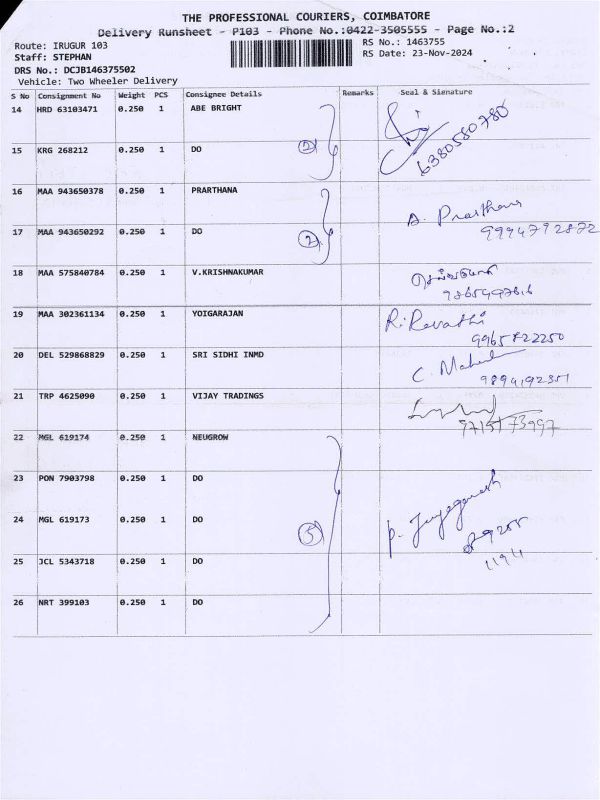 THE PROFESSIONAL COURIERS, COIMBATORE
Delivery Runsheet - P103 - Phone No.:0422-3505555 - Page No.:2
Route: IRUGUR 103 RS No.: 1463755
Staff: STEPHAN RS Date: 23-Nov-2024
DRS No.: DCJB146375502
Vehicle: Two Wheeler Delivery
S No Consignment No Weight PCS Consignee Details Remarks Seal & Signature
14 HRD 63103471 0.250 1 ABE BRIGHT
6380580780
15 KRG 268212 0.250 1 DO 2
16 MAA 943650378 0.250 1 PRARTHANA
A. Prarthana
17 MAA 943650292 0.250 1 DO 2 9994792872
18 MAA 575840784 0.250 1 V.KRISHNAKUMAR
19 MAA 302361134 0.250 1 YOIGARAJAN R. Revathi
9965822250
20 DEL 529868829 0.250 1 SRI SIDHI INMD
C.
9894192351
21 TRP 4625090 0.250 1 VIJAY TRADINGS
22 MGL 619174 0.250 1 NEUGROW
23 PON 7903798 0.250 1 DO
24 MGL 619173 0.250 1 DO 5 P. Jayaganesh
25 JCL 5343718 0.250 1 DO
26 NRT 399103 0.250 1 DO